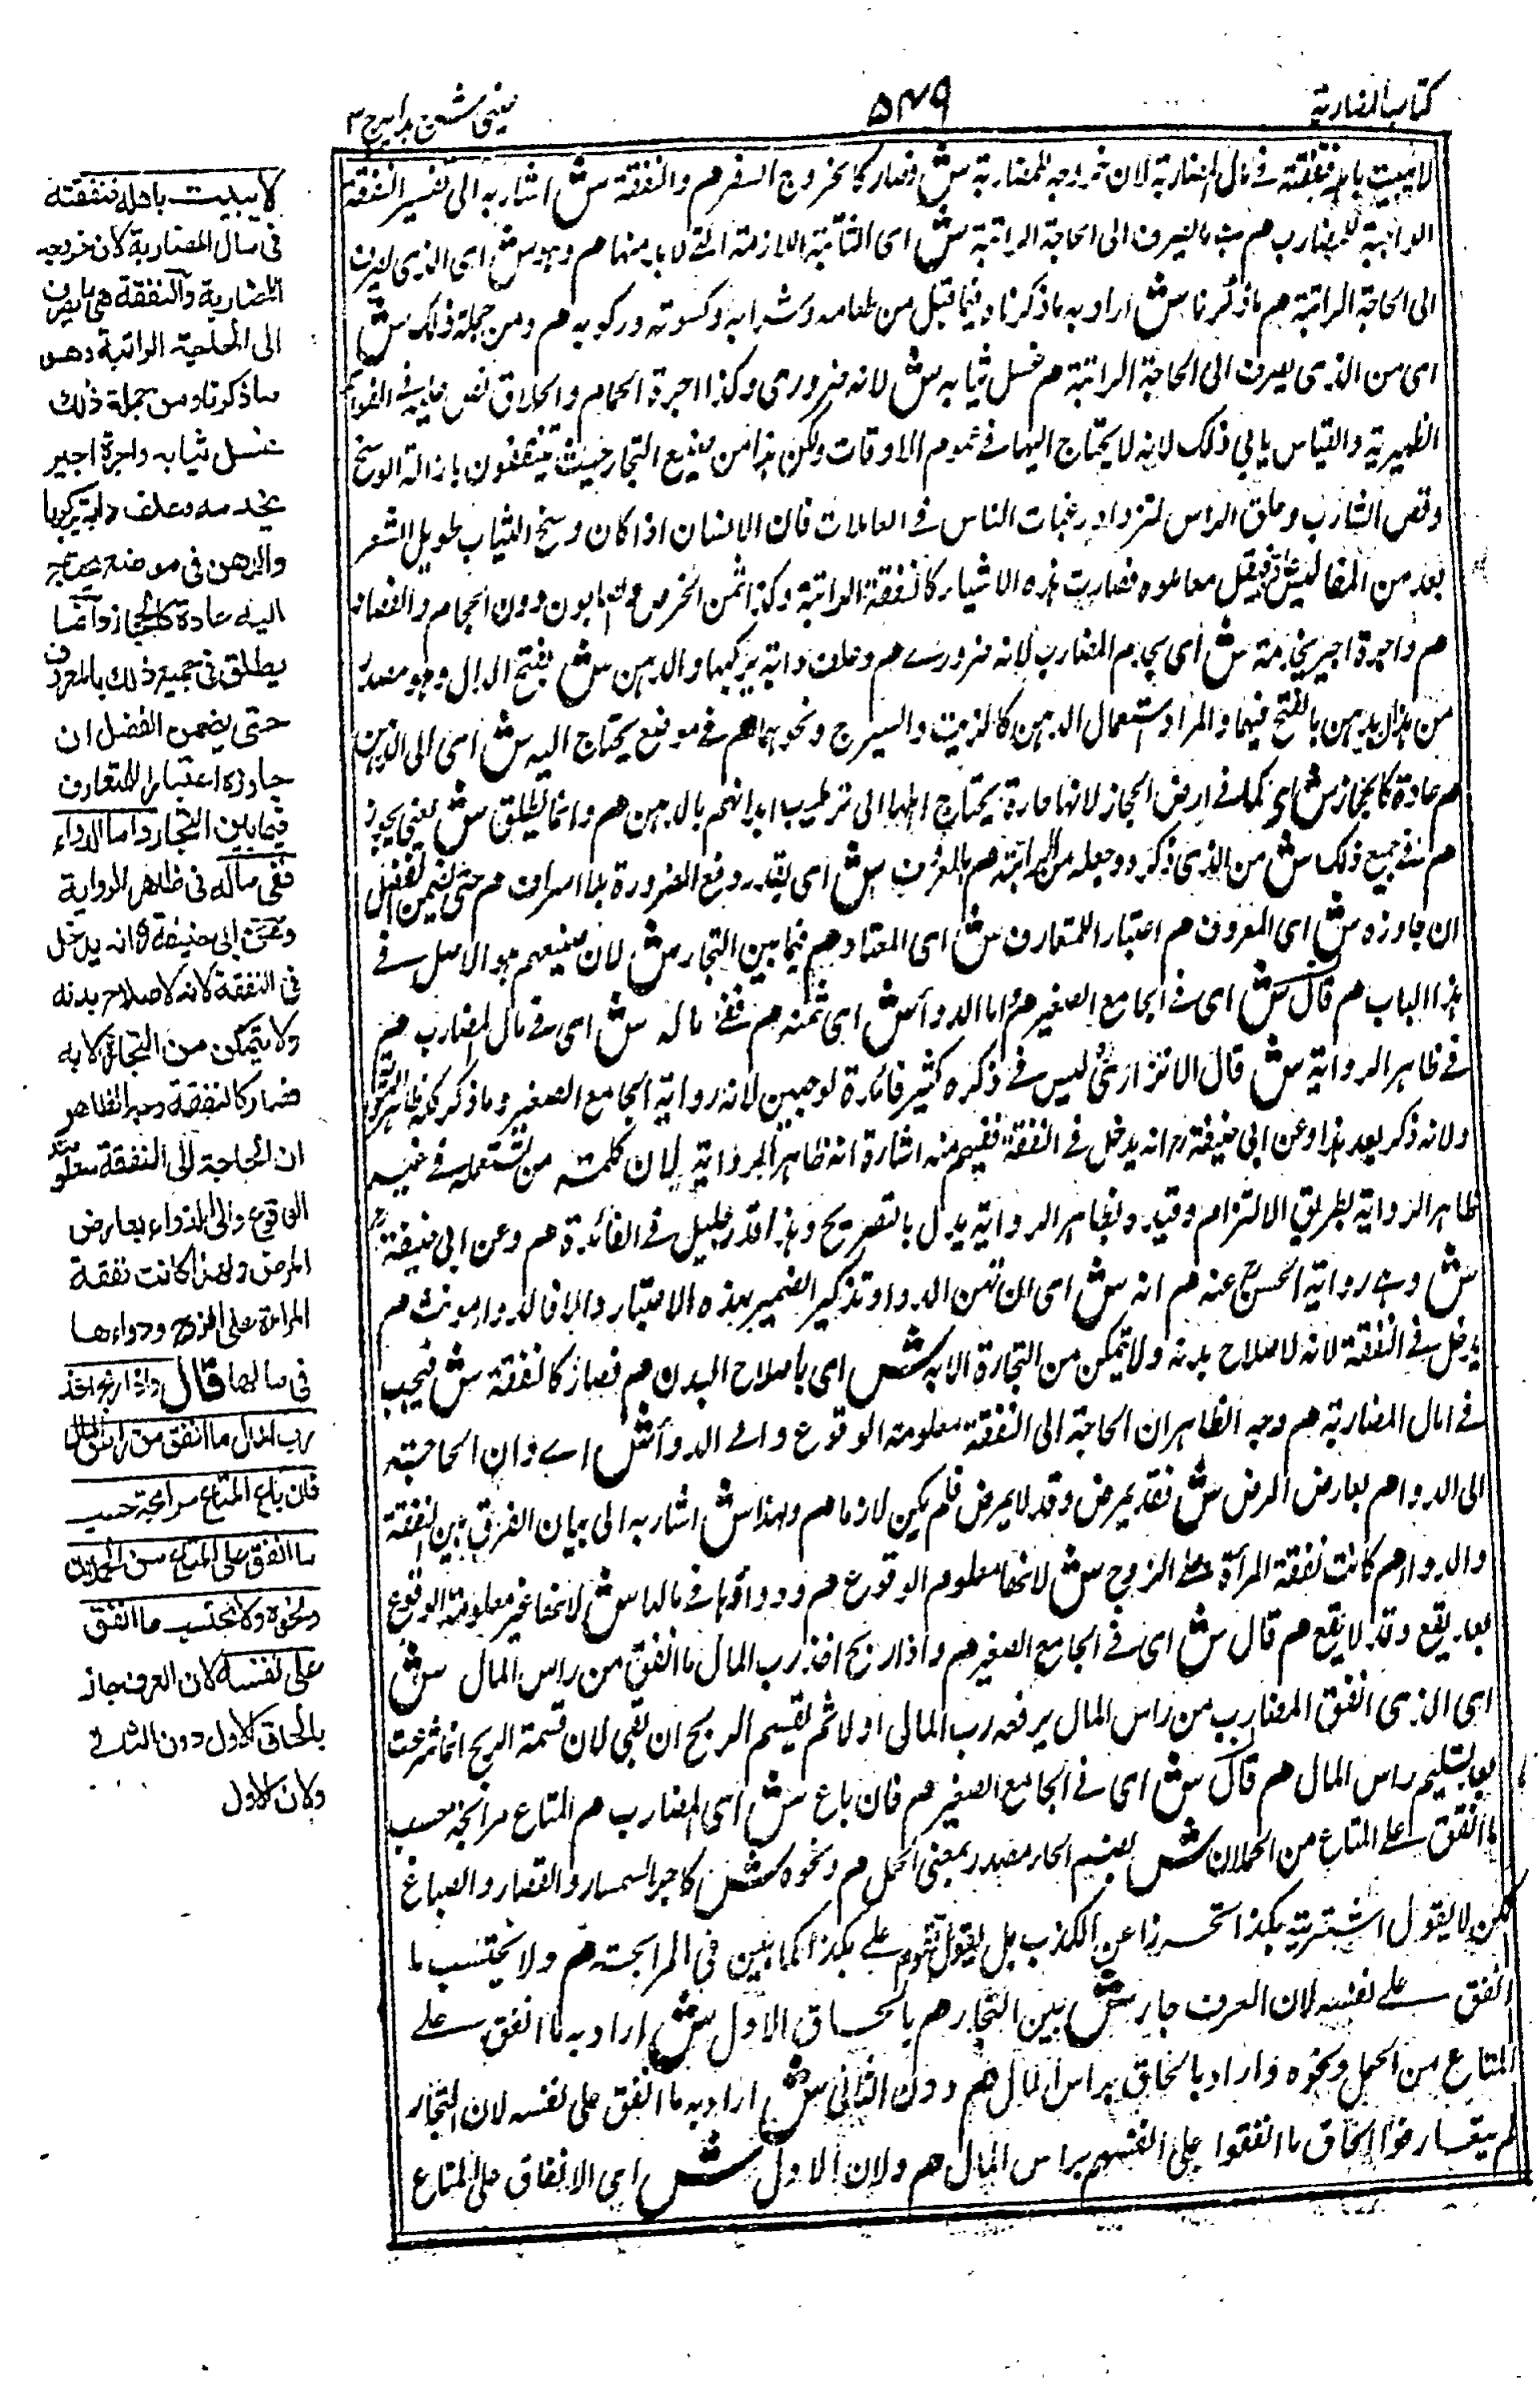 كتاب المضاربة
٥٤٩
عینی شرح ہدایہ ج ٣
لا يبيت باهله فنفقته في مال المضاربة لان خروجه للمضاربة ش فصار كالخروج السفر هم والنفقة ش اشار به الى تفسير النفقة
الواجبة للمضارب هم ما يصرف الى الحاجة الراتبة ش اى الثابتة اللازمة التي لا بد منها هم وهو ش اى الذى يصرف
الى الحاجة الراتبة هم ما ذكرنا ش اراد به ما ذكرناه فيما قبل من طعامه وشرابه وكسوته وركوبه هم ومن جملة ذلك ش
اى من الذى يصرف الى الحاجة الراتبة هم غسل ثيابه ش لانه ضرورى وكذا اجرة الحمام والحلاق نص عليه في الفوائد
الظهيرية والقياس يابى ذلك لانه لا يحتاج اليها في عموم الاوقات ولكن هذا من صنيع التجار حيث ينفقون بازالة الوسخ
وقص الشارب وحلق الراس لتزداد رغبات الناس في المعاملات فان الانسان اذا كان وسخ الثياب طويل الشعر
يعد من المفاليس فيقل معاملوه فصارت هذه الاشياء كالنفقة الراتبة وكذا ثمن الحرض والصابون دون الحجام والفصاد
هم واجرة اجير يخدمه ش اى يخدم المضارب لانه ضرورے هم وعلف دابة يركبها والدهن ش بفتح الدال وهو مصدر
من دهن يدهن بالفتح فيهما والمراد استعمال الدهن كالزيت والسيرج ونحوهما هم في موضع يحتاج اليه ش اى الى الدهن
هم عادة كالحجاز ش اى كما في ارض الحجاز لانها حارة يحتاج اهلها الى ترطيب ابدانهم بالدهن هم وانما يطلق ش يعنى يجوز
هم في جميع ذلك ش من الذى ذكره وجعله من الراتبة هم بالمعروف ش اى بقدر دفع الضرورة بلا اسراف هم حتى يضمن الفضل
ان جاوزه ش اى المعروف هم اعتبارا للمتعارف ش اى المعتاد هم فيما بين التجار ش لان صنيعهم هو الاصل في
هذا الباب هم قال ش اى في الجامع الصغير هم واما الدواء ش اى ثمنه هم ففي ماله ش اى في مال المضارب هم
في ظاهر الرواية ش قال الاترازىؒ ليس في ذكره كثير فائدة لوجهين لانه رواية الجامع الصغير وما ذكر فيه ظاهر الرواية
ولانه ذكر بعد هذا وعن ابي حنيفة رح انه يدخل في النفقة ففهم منه اشارة انه ظاهر الرواية لان كلمة عن تستعمل في غير
ظاهر الرواية بطريق الالتزام وقيد وبظاهر الرواية يدل بالتصريح وهذا قدر جليل في الفائدة هم وعن ابي حنيفة رح
ش وهے رواية الحسن عنه هم انه ش اى ان ثمن الدواء وتذكير الضمير بهذه الاعتبار والا فالدواء مونث هم
يدخل في النفقة لانه لاصلاح بدنه ولا تمكن من التجارة الا به ش اى باصلاح البدن هم فصار كالنفقة ش فيجب
في مال المضاربة هم وجه الظاهر ان الحاجة الى النفقة معلومة الوقوع والى الدواء ش اے وان الحاجة
الى الدواء هم بعارض المرض ش فقد يمرض وقد لا يمرض فلم يكن لازما هم ولهذا ش اشار به الى بيان الفرق بين النفقة
والدواء هم كانت نفقة المرأة على الزوج ش لانها معلوم الوقوع هم ودواؤها في مالها ش لانها غير معلومة الوقوع
فقد يقع وقد لا يقع هم قال ش اى في الجامع الصغير هم واذا ربح اخذ رب المال ما انفق من راس المال ش
اى الذى انفق المضارب من راس المال يرفعه رب المال اولا ثم يقسم الربح ان بقى لان قسمة الربح انما شرعت
بعد تسليم راس المال هم قال ش اى في الجامع الصغير هم فان باع ش اى المضارب هم المتاع مرابحة حسب
ما انفق على المتاع من الحملان ش بضم الحاء مصدر بمعنى الحمل هم ونحوه ش كاجر السمسار والقصار والصباغ
لكن لا يقول اشتريته بكذا تحرزا عن الكذب بل يقول تقوم على بكذا كما بين في المرابحة هم ولا يحتسب ما
انفق على نفسه لان العرف جار ش بين التجار هم بالحاق الاول ش اراد به ما انفق على
المتاع من الحمل ونحوه واراد بالحاق براس المال هم دون الثانى ش اراد به ما انفق على نفسه لان التجار
لم يتعارفوا الحاق ما انفقوا على انفسهم براس المال هم ولان الاول ش اى الانفاق على المتاع
لا يبيت باهله فنفقته
فى مال المضاربة لان خروجه
للمضاربة والنفقة هى ما يصرف
الى الحاجة الراتبة وهو
ما ذكرنا ومن جملة ذلك
غسل ثيابه واجرة اجير
يخدمه وعلف دابة يركبها
والدهن فى موضع يحتاج
اليه عادة كالحجاز وانما
يطلق فى جميع ذلك بالمعروف
حتى يضمن الفضل ان
جاوزه اعتبارا للمتعارف
فيما بين التجار واما الدواء
ففى ماله فى ظاهر الرواية
وعن ابى حنيفة رح انه يدخل
فى النفقة لانه لاصلاح بدنه
ولا يتمكن من التجارة الا به
فصار كالنفقة وجه الظاهر
ان الحاجة الى النفقة معلومة
الوقوع والى الدواء بعارض
المرض ولهذا كانت نفقة
المراة على الزوج ودواءها
فى مالها قال واذا ربح اخذ
رب المال ما انفق من راس المال
فان باع المتاع مرابحة حسب
ما انفق على المتاع من الحملان
ونحوه ولا يحتسب ما انفق
على نفسه لان العرف جار
بالحاق الاول دون الثانى
ولان الاول